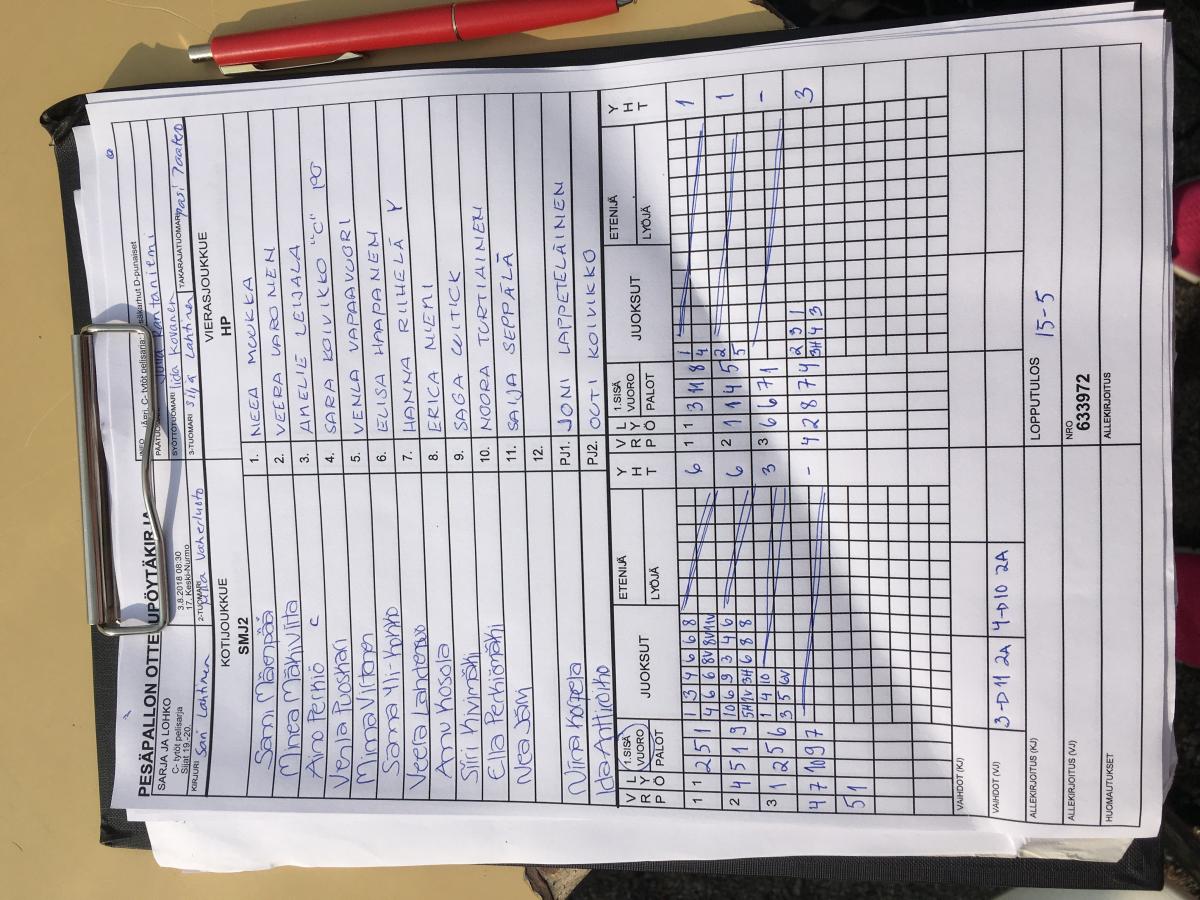 PESÄPALLON OTTELUPÖYTÄKIRJA
SARJA JA LOHKO
C- tytöt pelisarja
Sijat 19.-20.
3.8.2018 08:30
17. Keski-Nurmo
INFO
C- tytöt pelisarja:
D-punaiset
SYÖTTÖTUOMARI Iida Kovanen
KIRJURI Sari Lahtinen
2-TUOMARI
3-TUOMARI Silja Lahtinen
TAKARAJATUOMARI Pasi Jaatko
KOTIJOUKKUE
SMJ2
VIERASJOUKKUE
HP
Sanni Mäenpää 1. NEEA MUUKKA
Minea Mäkiviita 2. VEERA VARONEN
Aino Perkiö C 3. AMELIE LEIJALA
Venla Puoskari 4. SARA KOIVIKKO "C"
Minna Virtanen 5. VENLA VAPAAVUORI
Sanna Yli-Honko 6. ELISA HAAPANEN
Veela Lahdenvuo 7. HANNA RIIHELÄ Y
Anu Kosola 8. ERICA NIEMI
Siiri Hivimäki 9. SAGA
Ella Perkiömäki 10. NOORA TURTIAINEN
Nea Järvi 11. SAIJA SEPPÄLÄ
12.
Niina Korpela PJ1. JONI LAPPETELÄINEN
Ida Anttiroiko PJ2. OUTI KOIVIKKO
VRO ILYÖ 1.SISÄ VUORO PALOT JUOKSUT ETENIJÄ LYÖJÄ YHT VRO LYÖ 1.SISÄ VUORO PALOT JUOKSUT ETENIJÄ LYÖJÄ YHT
1 1 2 5 1 1 3 4 6 6 8 6 1 1 3 11 8 1 1
4 6 6 8V 8V 11V 4
2 4 5 1 9 10 6 9 3 4 6 6 2 1 1 4 5 2 1
5H 1V 3H 6 8 8 5
3 1 2 5 6 1 4 10 3 3 6 6 7 1 -
3 5 6V
4 7 10 9 7 - 4 2 8 7 4 2 9 1 3
3H 4 3
5 1
VAIHDOT (KJ)
VAIHDOT (VJ) 3-D11 2A 4-D10 2A
ALLEKIRJOITUS (KJ) LOPPUTULOS 15-5
ALLEKIRJOITUS (VJ) NRO 6339172
HUOMAUTUKSET ALLEKIRJOITUS